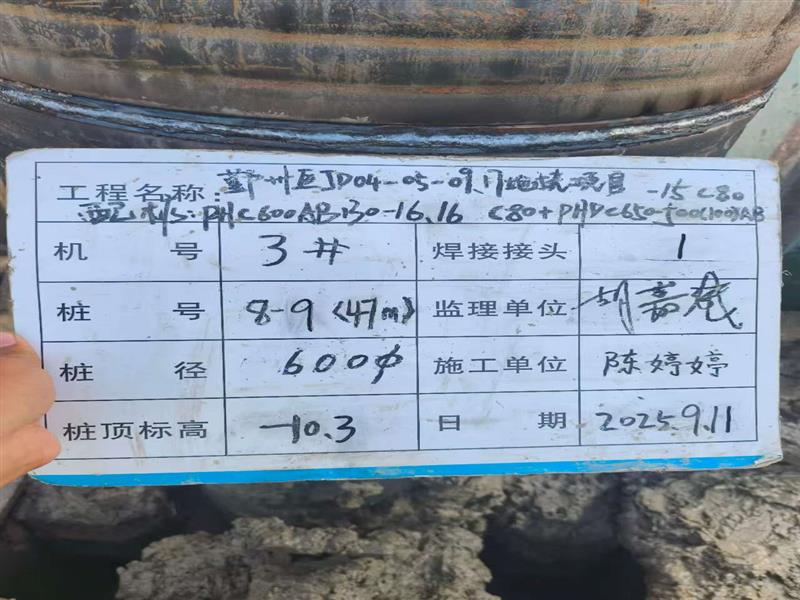 工程名称: 鄞州区JD04-05-09.17地块项目 -15C80
配桩: PHC600AB130-16.16 C80+PHDC650-500(100)AB
机号 3# 焊接接头 1
桩号 8-9 (47m) 监理单位 胡嘉
桩径 600ϕ 施工单位 陈婷婷
桩顶标高 -10.3 日期 2025.9.11